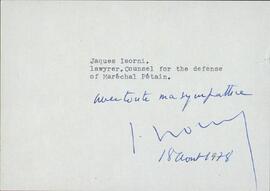 Jaques Isorni.
lawyrer, Counsel for the defense
of Maréchal Pétain.
avec toute ma sympathie
J. Isorni
18 Aout 1978